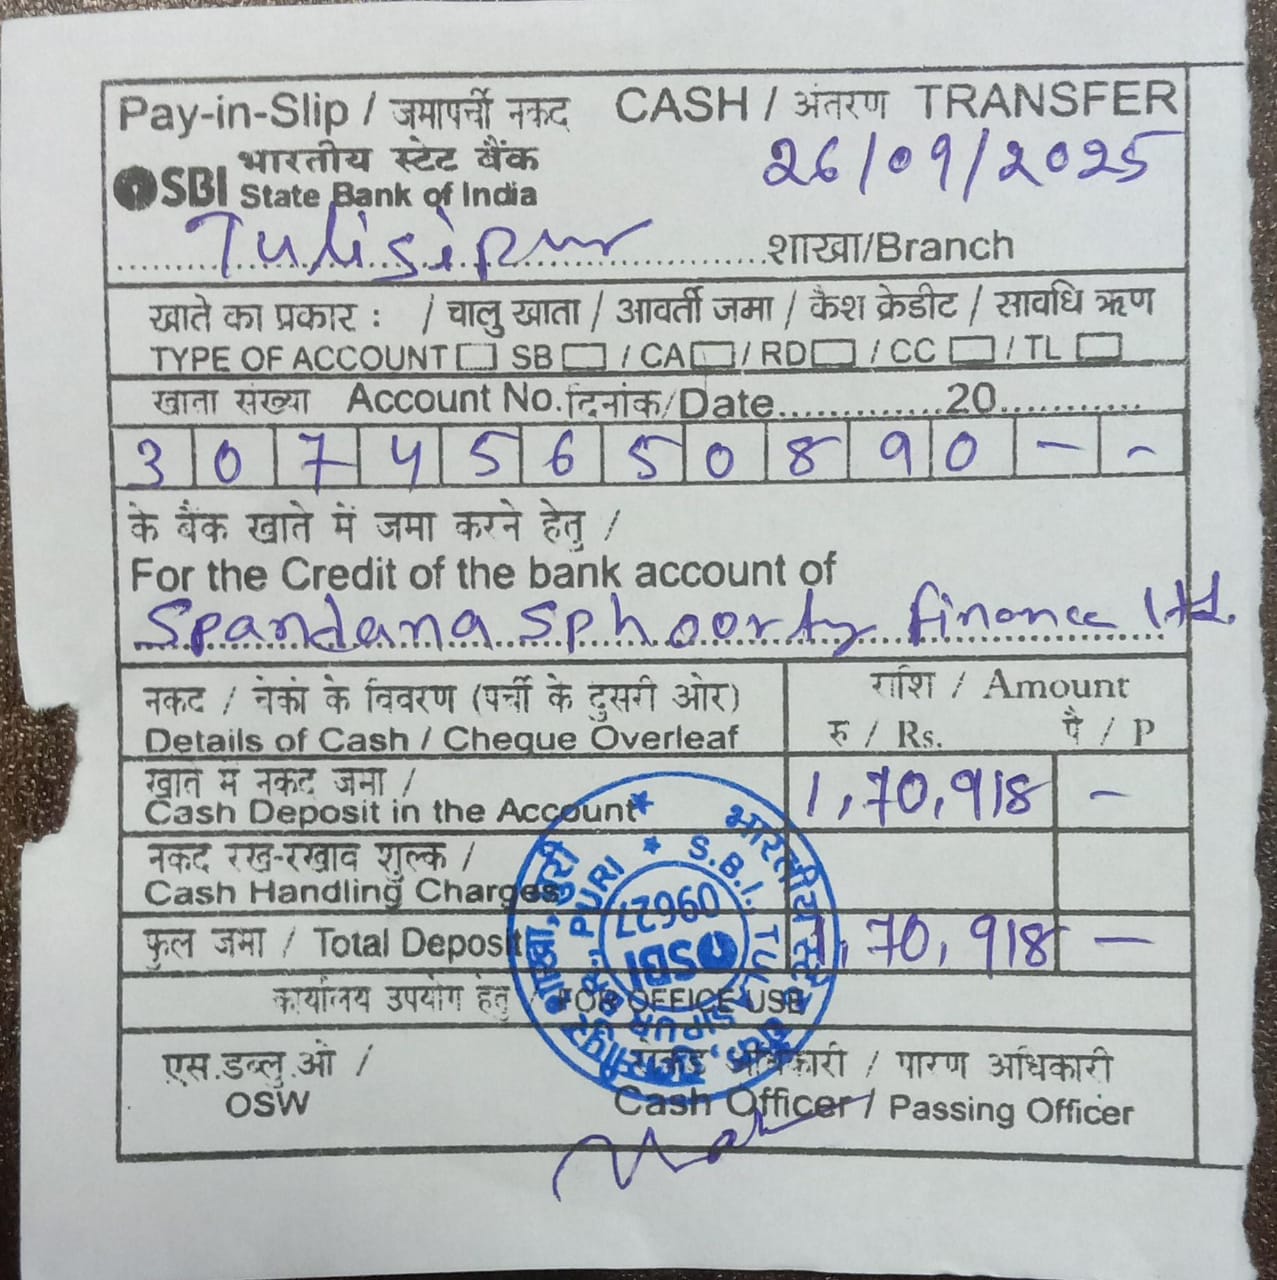 Pay-in-Slip / जमापर्ची नकद CASH / अंतरण TRANSFER
भारतीय स्टेट बैंक
SBI State Bank of India
26/09/2025
Tulisipur शाखा/Branch
खाते का प्रकार : / चालु खाता / आवर्ती जमा / कैश क्रेडीट / सावधि ऋण
TYPE OF ACCOUNT SB / CA / RD / CC / TL
खाता संख्या Account No. दिनांक/Date.............20...........
3 0 7 4 5 6 5 0 8 9 0 - -
के बैंक खाते में जमा करने हेतु /
For the Credit of the bank account of
Spandana Sphoorty finance Ltd.
नकद / चेकों के विवरण (पर्ची के दुसरी ओर)
Details of Cash / Cheque Overleaf
राशि / Amount
रु / Rs. पै / P
खाते में नकद जमा /
Cash Deposit in the Account 1,70,918 -
नकद रख-रखाव शुल्क /
Cash Handling Charges
कुल जमा / Total Deposit 1,70,918 -
कार्यालय उपयोग हेतु / FOR OFFICE USE
एस.डब्लु.ओ /
OSW
अधिकारी / पारण अधिकारी
Cash Officer / Passing Officer
भारतीय स्टेट बैंक
शाखा, पुरी
S.B.I. TULASIPUR
PURI
09627
SBI